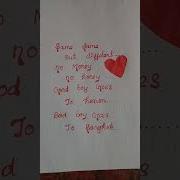 Same Same
But different
No Money
No honey
Good boy Goes
To heaven
Bad boy Goes
To Bangkok